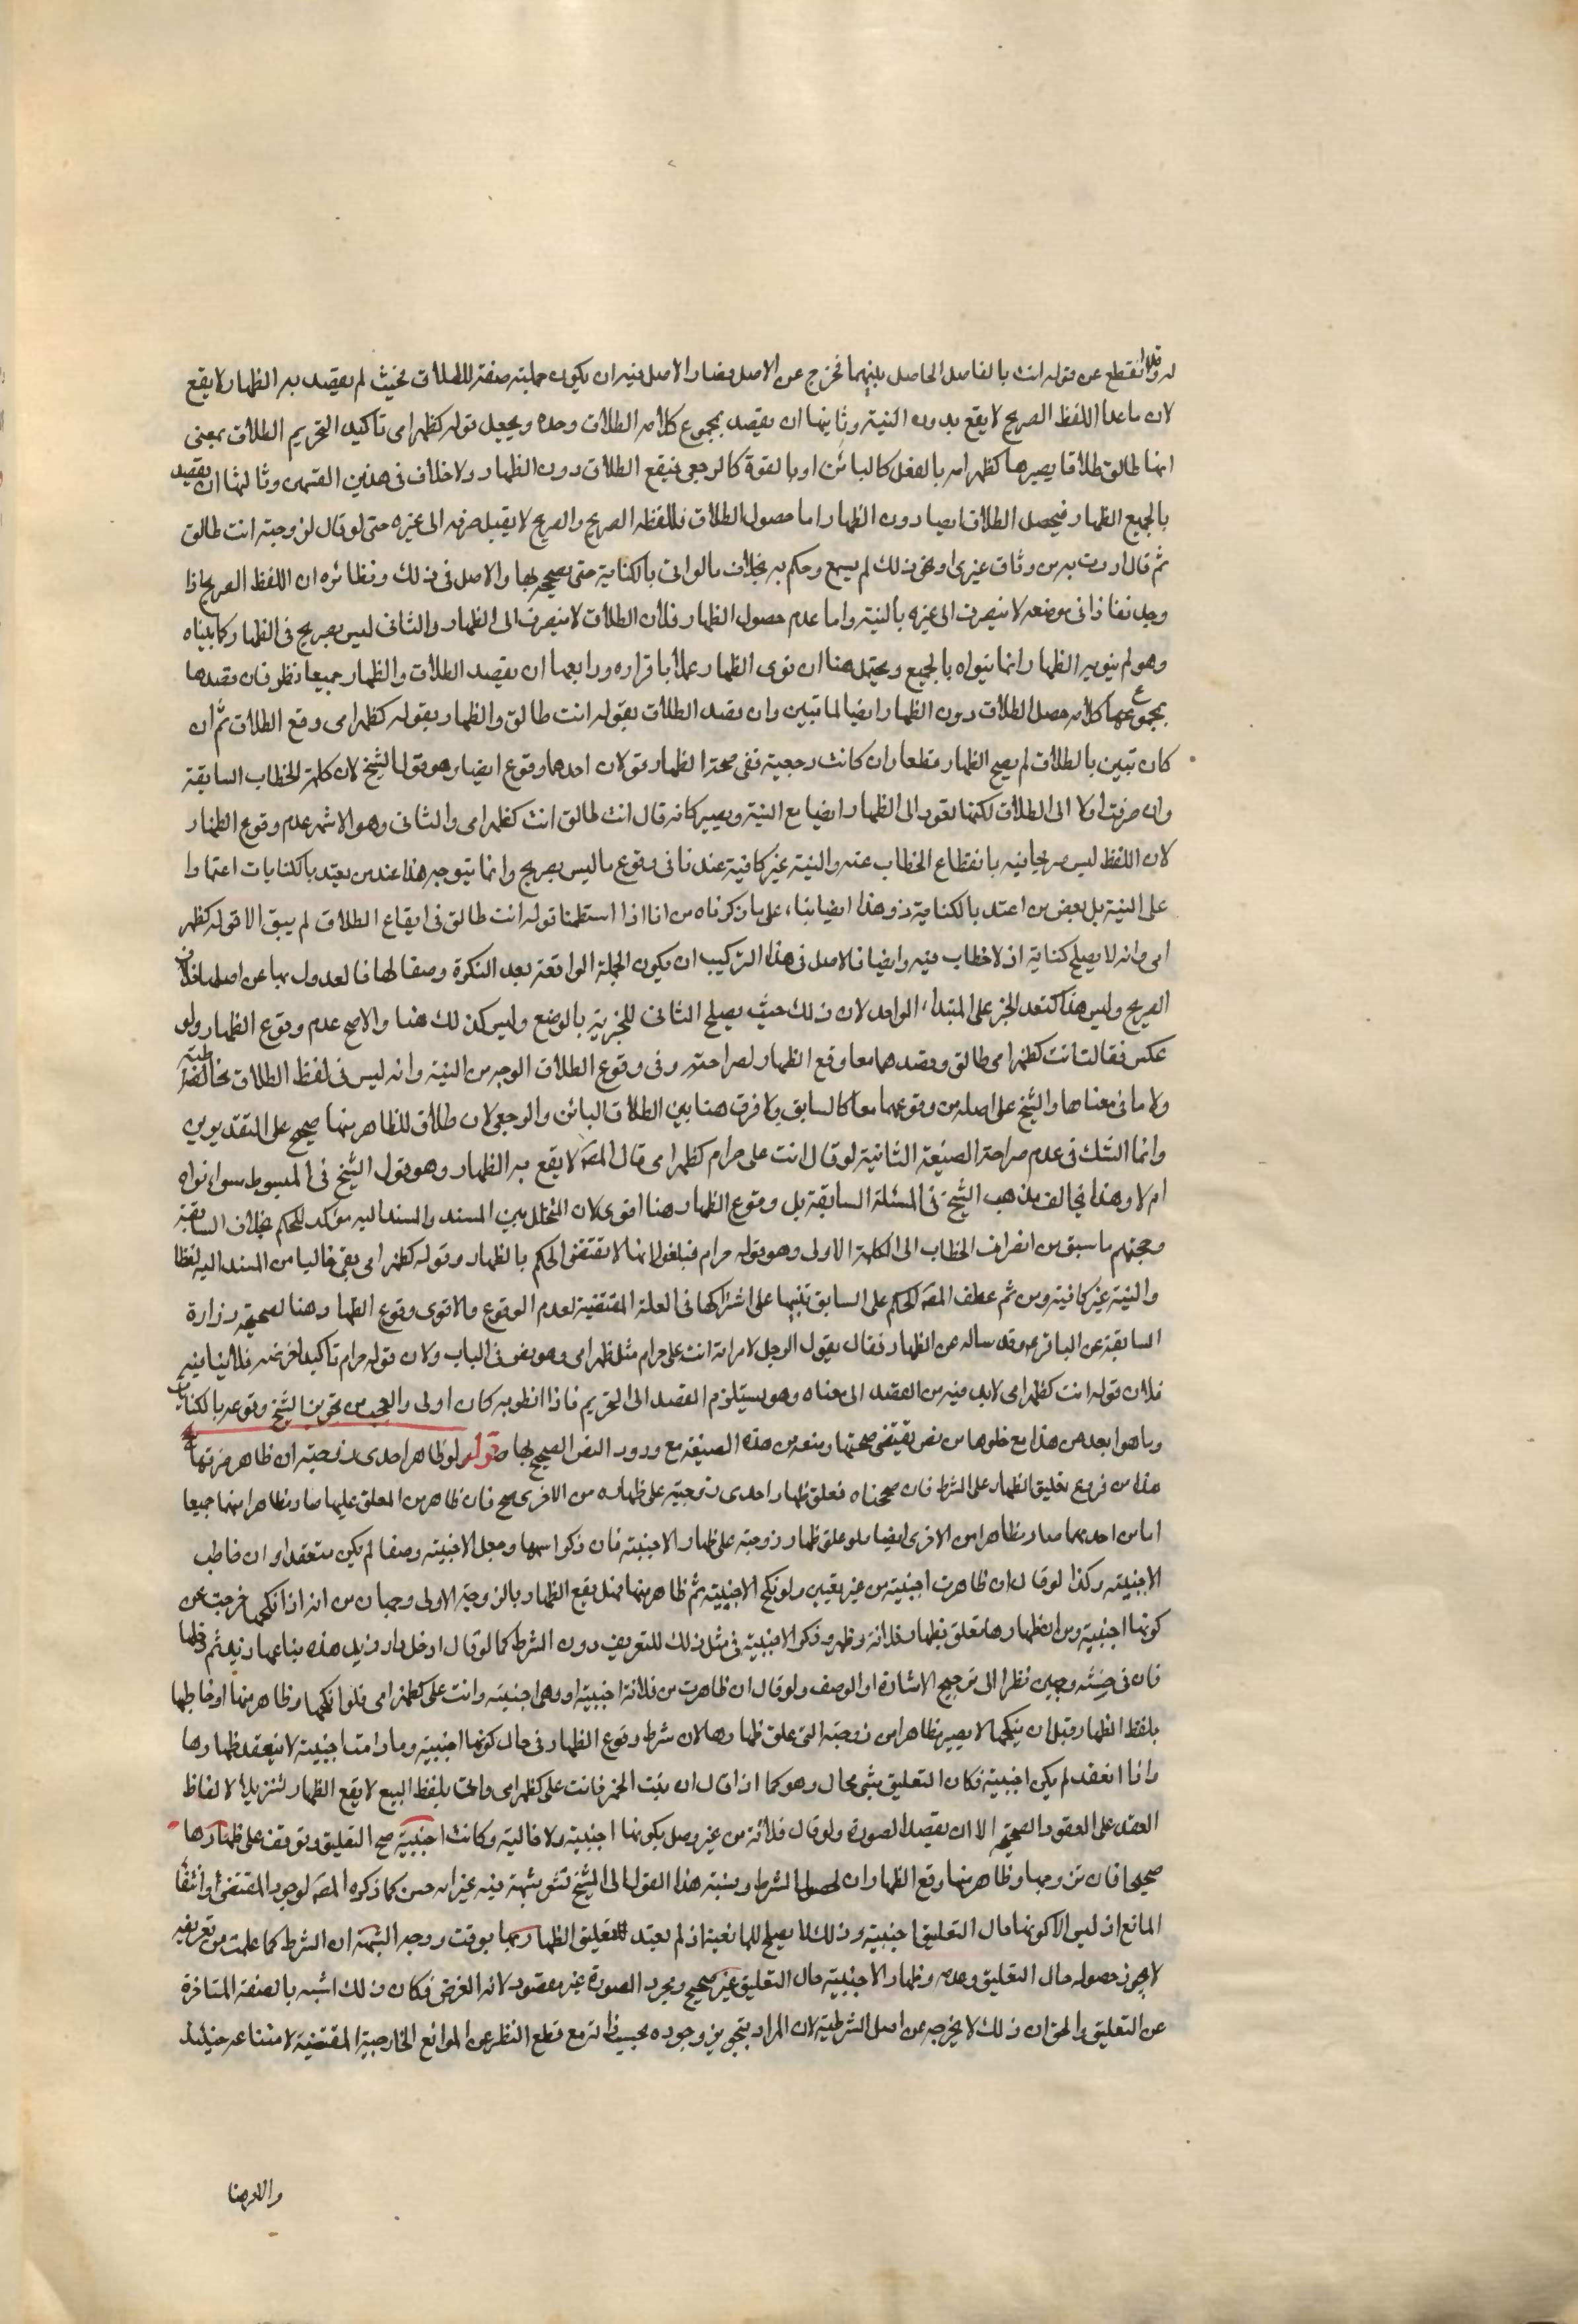 له وقد انقطع عن قوله انت بالفاصل الحاصل بينهما فخرج عن الاصل فصار الاصل فيه ان يكون جملته صفة للطلاق فحيث لم يقصد به الظهار لا يقع
لان ما عدا اللفظ الصريح لا يقع بدون النية وثانيها ان يقصد بمجموع كلامه الطلاق وحده ويجعل قوله كظهر امى تاكيد التحريم الطلاق بمعنى
انها طالق طلاقا يصيرها كظهر امه بالفعل كالبائن او بالقوة كالرجعى فيقع الطلاق دون الظهار ولا خلاف فى هذين القسمين وثالثها ان يقصد
بالجميع الظهار فيحصل الطلاق ايضا دون الظهار اما حصول الطلاق فللفظه الصريح والصريح لا يقبل صرفه الى غيره حتى لو قال لزوجته انت طالق
ثم قال اردت به من وثاق غيرى او نحو ذلك لم يسمع وحكم به بخلاف ما لو اتى بالكناية حتى يصححه بها والاصل فى ذلك ونظائره ان اللفظ الصريح اذا
وجد نفاذا فى موضعه لا ينصرف الى غيره بالنية واما عدم حصول الظهار فلان الطلاق لا ينصرف الى الظهار والثانى ليس بصريح فى الظهار كما بيناه
وهو لم ينو به الظهار انما نواه بالجميع ويحتمل هنا ان نوى الظهار عملا باقراره ورابعها ان يقصد الطلاق والظهار جميعا نظر فان قصدها
بمجموع كلامه حصل الطلاق دون الظهار ايضا لما تبين وان قصد الطلاق بقوله انت طالق والظهار بقوله كظهر امى وقع الطلاق ثم ان
كان تبين بالطلاق لم يصح الظهار قطعا وان كانت رجعية ففى صحة الظهار قولان احدهما وقوع ايضا وهو قول الشيخ لان كلمة الخطاب السابقة
وان صرفت اولا الى الطلاق لكنها تعود الى الظهار ايضا مع النية ويصير كانه قال انت طالق انت كظهر امى والثانى وهو الاشهر عدم وقوع الظهار
لان اللفظ ليس صريحا فيه بانقطاع الخطاب عنه والنية غير كافية عندنا فى وقوع ما ليس بصريح وانما يتوجه هذا عند من يعتد بالكنايات اعتمادا
على النية بل بعض من اعتد بالكناية رد هذا ايضا بناء على ما ذكرناه من انا اذا استعملنا قوله انت طالق فى ايقاع الطلاق لم يبق الا قوله كظهر
امى وانه لا يصلح كناية اذ لا خطاب فيه وايضا فالاصل فى هذا التركيب ان يكون الجملة الواقعة بعد النكرة وصفا لها فالعدول بها عن اصلها خلاف
الصريح وليس هذا كتعدد الخبر على المبتداء الواحد لان ذلك حيث يصلح الثانى للخبرية بالوضع وليس كذلك هنا والاصح عدم وقوع الظهار ولو
عكس فقال انت كظهر امى طالق وقصدهما معا وقع الظهار لصراحته وفى وقوع الطلاق الوجه من النية وانه ليس فى لفظ الطلاق مخاطبة
ولا ما فى معناها والشيخ على اصله من وقوعهما معا كالسابق ولا فرق هنا بين الطلاق البائن والرجعى لان طلاق المظاهر منها صحيح على التقديرين
وانما الشك فى عدم صراحة الصيغة الثانية لو قال انت على حرام كظهر امى قال المص لا يقع به الظهار وهو قول الشيخ فى المبسوط سواء نواه
ام لا وهذا يخالف مذهب الشيخ فى المسئلة السابقة بل وقوع الظهار هنا اقوى لان المتخلل بين المسند والمسند اليه مؤكد للحكم بخلاف السابقة
وحجتهم ما سبق من انصراف الخطاب الى الكلمة الاولى وهو قوله حرام فيلغو لانها لا تقتضى الحكم بالظهار وقوله كظهر امى بقى خاليا من المسند اليه لفظا
والنية غير كافية ومن ثم عطف المص الحكم على السابق تنبيها على اشتراكها فى العلة المقتضية لعدم الوقوع والاقوى وقوع الظهار هنا لصحيحة زرارة
السابقة عن الباقر ع وقد ساله عن الظهار فقال يقول الرجل لامراته انت على حرام مثل ظهر امى وهو نص فى الباب ولان قوله حرام تاكيد لغرضه فلا ينافيه
فلان قوله انت كظهر امى لابد فيه من القصد الى معناه وهو يستلزم القصد الى التحريم فاذا نطق به كان اولى والعجب من تجويز الشيخ وقوعه بالكنايات
وما هو ابعد من هذا مع خلوها من نص يقتضى صحتها ومنعه من هذه الصيغة مع ورود النص الصحيح بها قوله لو ظاهر احدى زوجتيه ان ظاهر ضرتها
هذا من فروع تعليق الظهار على الشرط فان صححناه فعلق ظهار احدى زوجتيه على ظهاره من الاخرى صح فان ظاهر من المعلق عليها صار مظاهرا منهما جميعا
اما من احدهما صار مظاهرا من الاخرى ايضا ولو علق ظهار زوجته على ظهار الاجنبية فان ذكر اسمها وجعل الاجنبية وصفا لم يكن منعقدا وان خاطب
الاجنبية وكذا لو قال ان ظاهرت اجنبية من غير تعيين ولو نكح الاجنبية ثم ظاهر منها فهل يقع الظهار بالزوجة الاولى وجهان من انه اذا نكحها خرجت عن
كونها اجنبية ومن ان ظهارها تعلق بظهار فلانة وظهر وذكر الاجنبية فى مثل ذلك للتعريف دون الشرط كما لو قال ادخل دار زيد هذه فباعها زيد ثم دخلها
فان فى حنثه وجهين نظرا الى ترجيح الاشارة او الوصف ولو قال ان ظاهرت من فلانة اجنبية او وهى اجنبية وانت على كظهر امى فلو نكحها وظاهر منها او خاطبها
بلفظ الظهار قبل ان ينكحها لا يصير مظاهرا من زوجته التى علق ظهارها لان شرط وقوع الظهار فى حال كونها اجنبية وما دامت اجنبية لا ينعقد ظهارها
واذا انعقد لم يكن اجنبية فكان التعليق بشى محال وهو كما اذا قال ان بعت الخمر فانت على كظهر امى واتى بلفظ البيع لا يقع الظهار لتنزيل الالفاظ
العقد على العقود الصحيحة الا ان يقصد الصورة ولو قال فلانة من غير وصل بكونها اجنبية ولا خالية وكانت اجنبية صح التعليق ويوقف على ظهارها
صحيحا فان تزوجها وظاهر منها وقع الظهاران لحصول الشرط ونسبة هذا القول الى الشيخ تشعر بشبهة فيه غير انه حسن كما ذكره المص لوجود المقتضى وانتفاء
المانع اذ ليس الا كونها حال التعليق اجنبية وذلك لا يصلح للمانعية اذ لم يعتد تعليق الظهار بها بوقت ووجه الشبهة ان الشرط كما علمت من تعريفه
لا يجوز حصوله حال التعليق وعدمه وظهار الاجنبية حال التعليق غير صحيح ومجرد الصورة غير مقصود لانه الغرض فكان ذلك اشبه بالصفة المتاخرة
عن التعليق والحق ان ذلك لا يخرجه عن اصل الشرطية لان المراد بتجويز وجوده بحسب ذاته مع قطع النظر عن الموانع الخارجية المقتضية لامتناعه حينئذ
والامر هنا